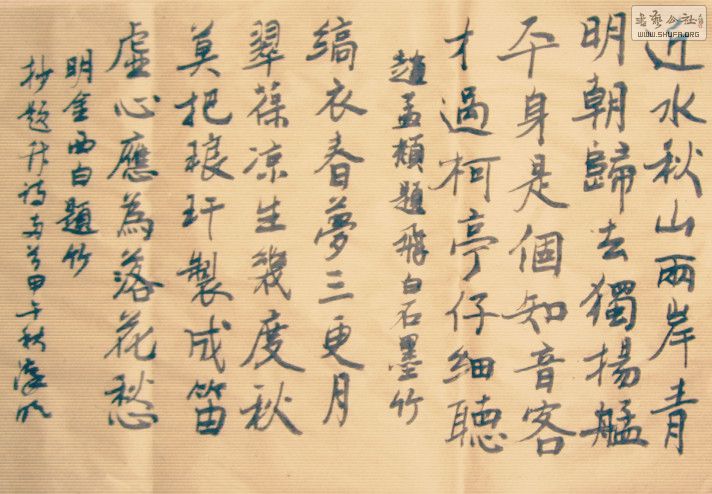 近水秋山兩岸青
明朝歸去獨揚舲
平身是個知音客
才過柯亭仔細聽
趙孟頫題飛白石墨竹
縞衣春夢三更月
翠葆凉生幾度秋
莫把琅玕製成笛
虛心應為落花愁
明金西白題竹
抄題竹詩兩首甲午秋
書藝公社
WWW.SHUFA.ORG